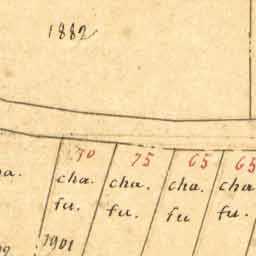 1882
70 75 65 65
cha. cha. cha. cha
fu. fu. fu fu.
1901